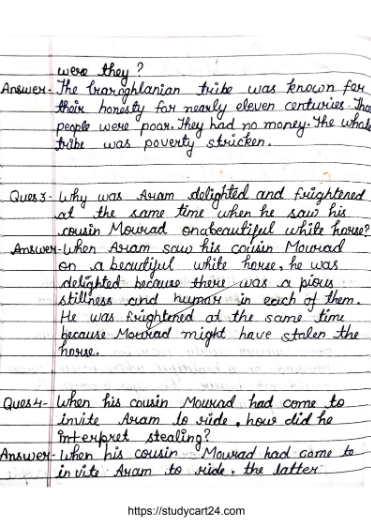 were they ?
Answer- The Garoghlanian tribe was known for
their honesty for nearly eleven centuries. The
people were poor. They had no money. The whole
tribe was poverty stricken.
Ques 3- Why was Aram delighted and frightened
at the same time when he saw his
cousin Mourad on a beautiful white horse?
Answer- When Aram saw his cousin Mourad
on a beautiful white horse, he was
delighted because there was a pious
stillness and humar in each of them.
He was frightened at the same time
because Mourad might have stolen the
horse.
Ques 4- When his cousin Mourad had come to
invite Aram to ride, how did he
interpret stealing?
Answer- When his cousin Mourad had come to
invite Aram to ride. the latter
https://studycart24.com